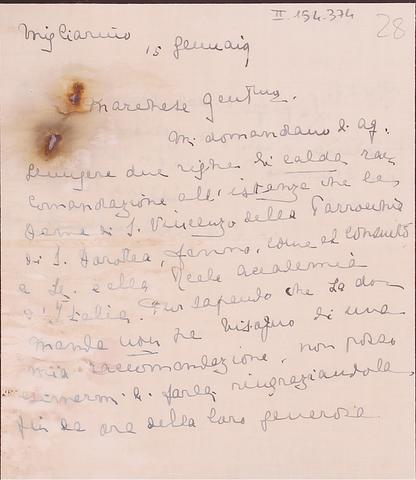 II. 154.374
28
Migliarino
15 Gennaio
Marchese Gentmo.
Mi domandano di ag.
giungere due righe di calda rac
comandazione all'istanza che le
Dame di S. Vincenzo della Parrocchia
di S. Dorotea, fanno, come al consueto
a Lei e alla Reale Accademia
d'Italia. Pur sapendo che la do
manda non ha bisogno di una
mia raccomandazione, non posso
esimermi di farla ringraziandola
fin da ora della loro generosa